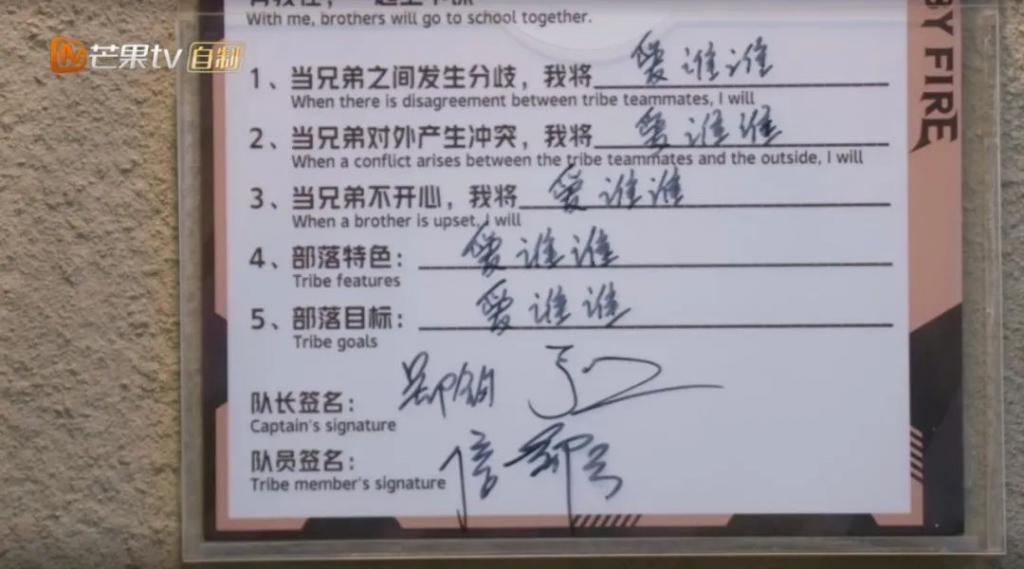 With me, brothers will go to school together.
芒果tv 自制
BY FIRE
1、当兄弟之间发生分歧，我将 爱谁谁
When there is disagreement between tribe teammates, I will
2、当兄弟对外产生冲突，我将 爱谁谁
When a conflict arises between the tribe teammates and the outside, I will
3、当兄弟不开心，我将 爱谁谁
When a brother is upset, I will
4、部落特色： 爱谁谁
Tribe features
5、部落目标： 爱谁谁
Tribe goals
队长签名：
Captain's signature
队员签名：
Tribe member's signature